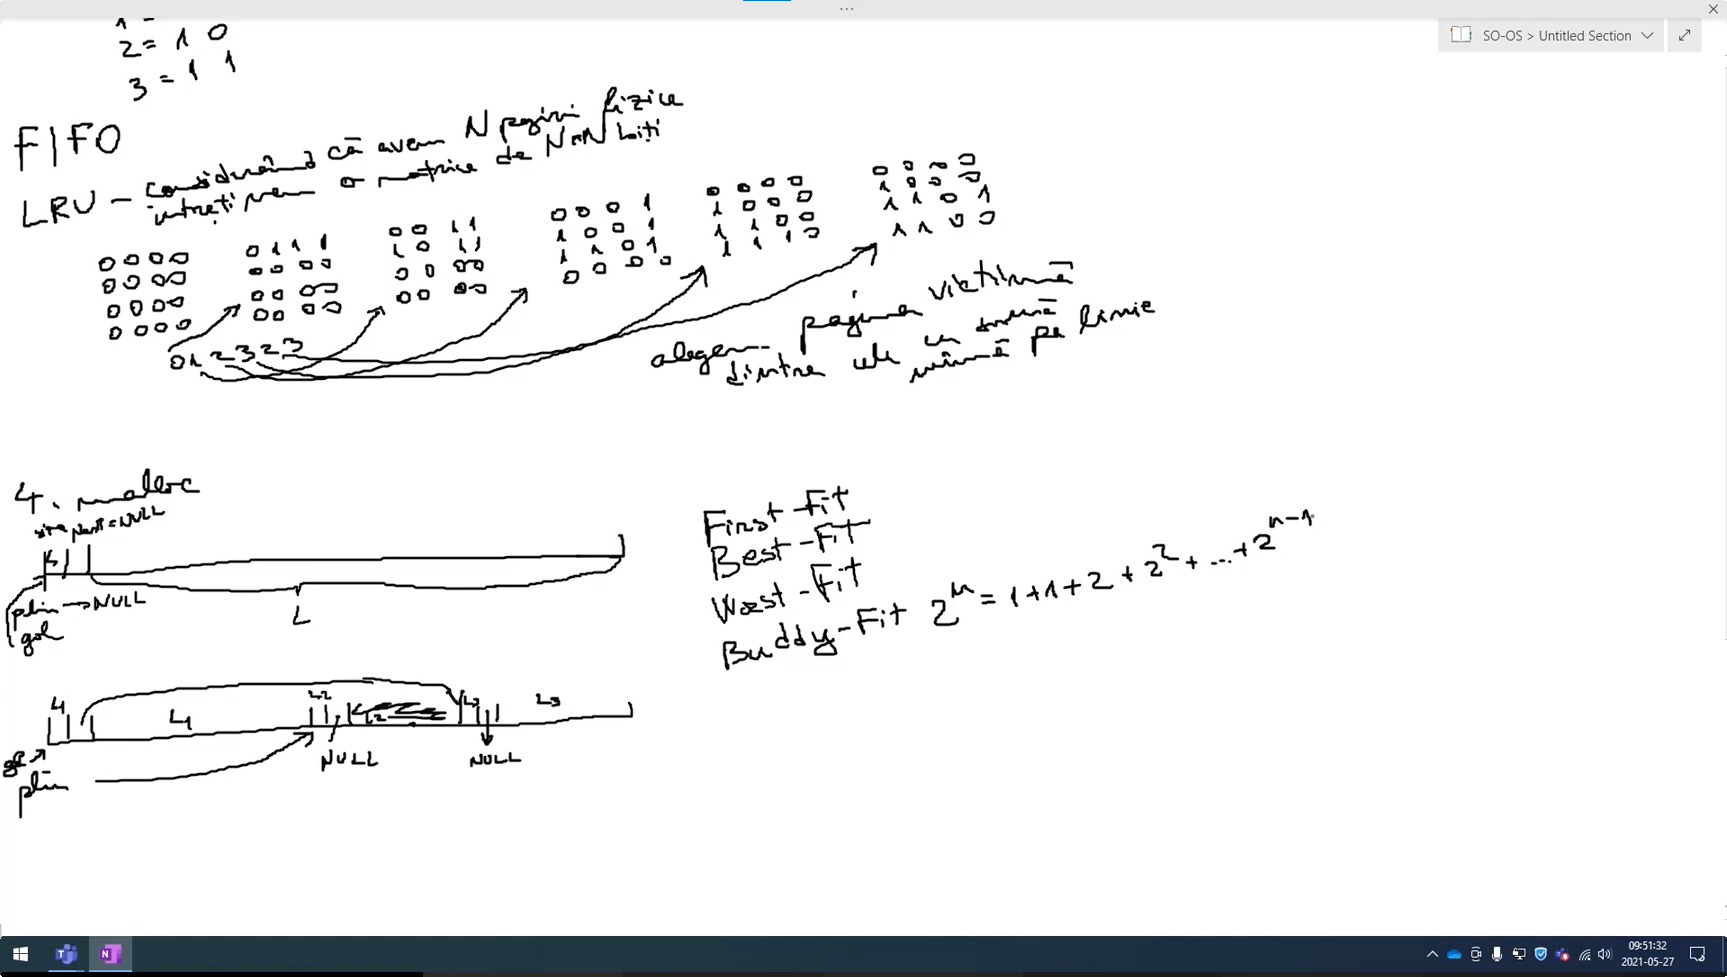 SO-OS > Untitled Section
1 =
2 = 1 0
3 = 1 1
FIFO
LRU - considerând că avem N pagini fizice
întreținem o matrice de N×N biți
0 0 0 0
0 0 0 0
0 0 0 0
0 0 0 0
0 1 1 1
0 0 0 0
0 0 0 0
0 0 0 0
0 0 1 1
1 0 1 1
0 0 0 0
0 0 0 0
0 0 0 1
1 0 0 1
1 1 0 1
0 0 0 0
0 0 0 0
1 0 0 0
1 1 0 0
1 1 1 0
0 0 0 0
1 0 0 0
1 1 0 1
1 1 0 0
0 1 2 3 2 3
alegem pagina victimă
dintre cele cu sumă
minimă pe linie
4. malloc
size next=NULL
L
plin → NULL
gol
L
First-Fit
Best-Fit
Worst-Fit
Buddy-Fit 2^n = 1+1+2+2^2+...+2^n-1
L1 L2 L2 L3 L3
NULL NULL
gol
plin
09:51:32
2021-05-27